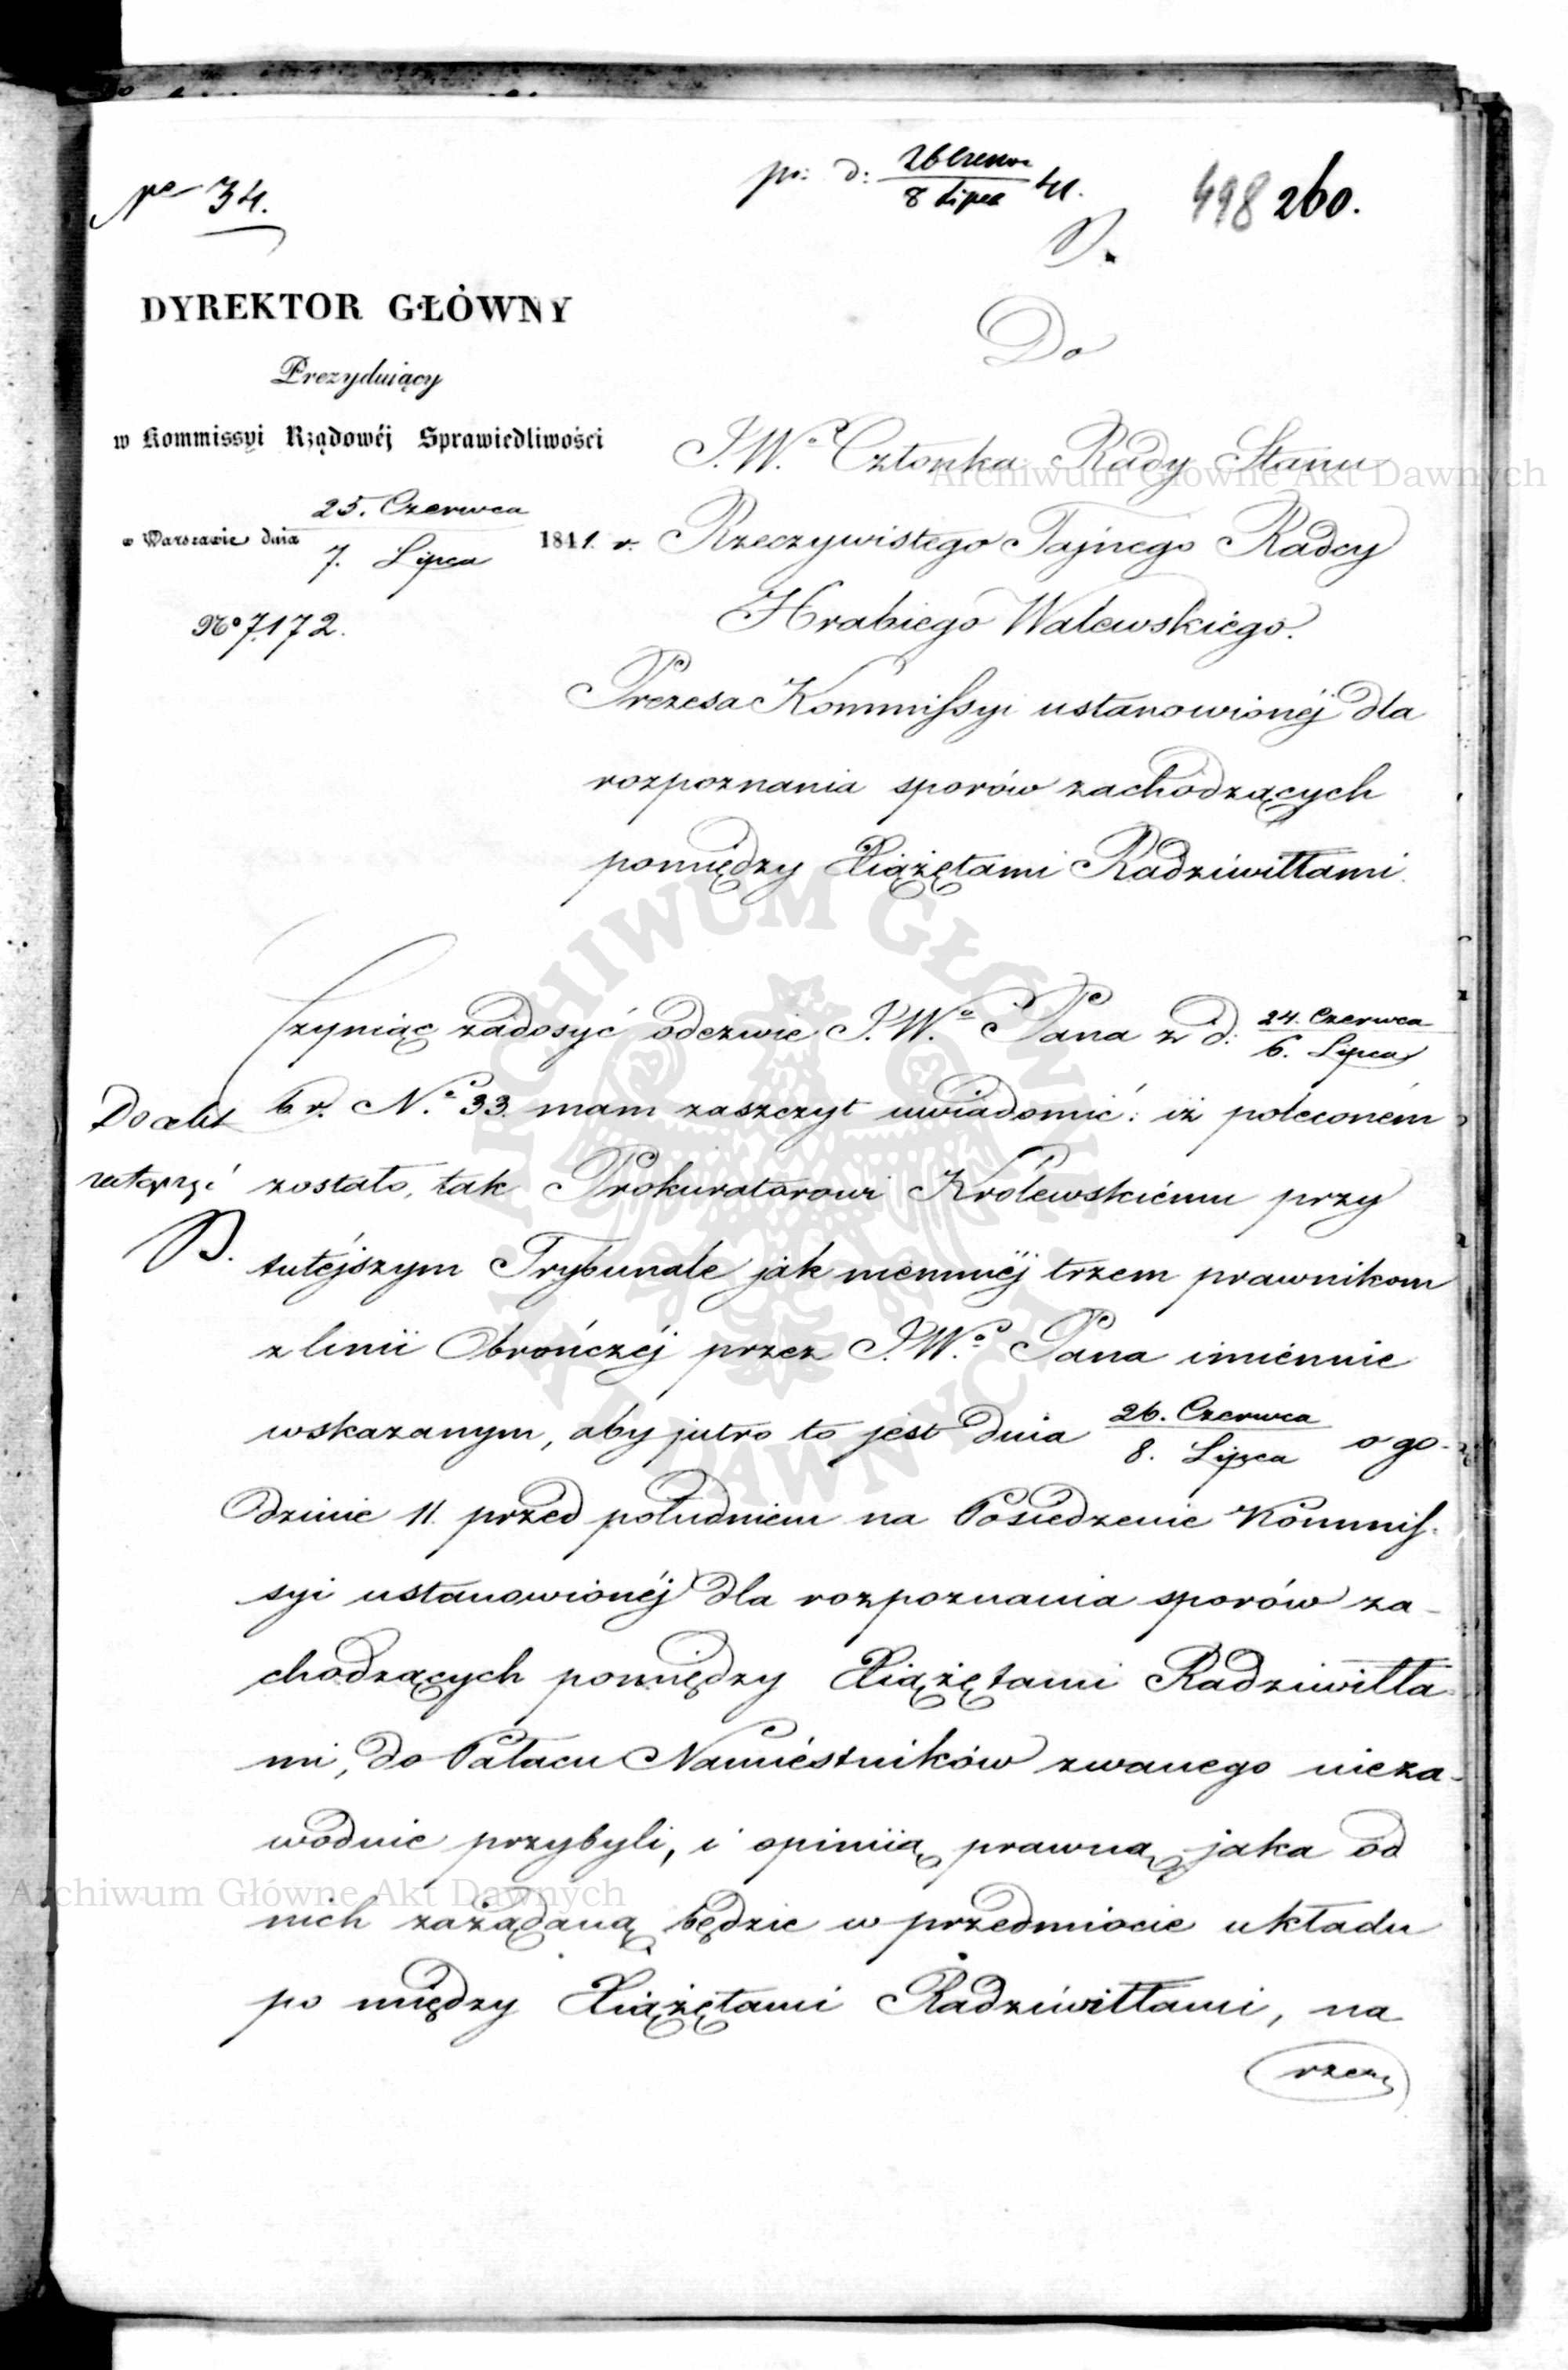 No 34.
pr: d: 26 Czerw / 8 Lipca 41.
498 260.
DYREKTOR GŁÓWNY
Prezydujący
w Kommissyi Rządowéj Sprawiedliwości
w Warszawie dnia 25. Czerwca / 7. Lipca 1841. r.
No 7,172.
Do
J.W.o Członka Rady Stanu
Rzeczywistego Tajnego Radcy
Hrabiego Walewskiégo.
Prezesa Kommissyi ustanowionéj dla
rozpoznania sporów zachodzących
pomiędzy Xiążętami Radziwiłłami.
Czyniąc zadosyć odezwie J.W.o Pana z d: 24. Czerwca / 6. Lipca
b.r. N.o 33. mam zaszczyt uwiadomić: iż poleconém
zostało, tak Prokuratorowi Królewskiému przy
tutéjszym Trybunale jak niemniéj trzem prawnikom
z linii Obrończéj przez J.W.o Pana imiénnie
wskazanym, aby jutro to jest dnia 26. Czerwca / 8. Lipca o go-
dzinie 11. przed południem na Posiedzenie Kommis-
syi ustanowionéj dla rozpoznania sporów za-
chodzących pomiędzy Xiążętami Radziwiłła-
mi, do Pałacu Namiéstników zwanego nieza-
wodnie przybyli, i opiniią prawną jaka od
nich zażądaną będzie w przedmiocie układu
po między Xiążętami Radziwiłłami, na
rzecz
Do akt
Archiwum Główne Akt Dawnych
Archiwum Główne Akt Dawnych
ARCHIWUM GŁÓWNE AKT DAWNYCH